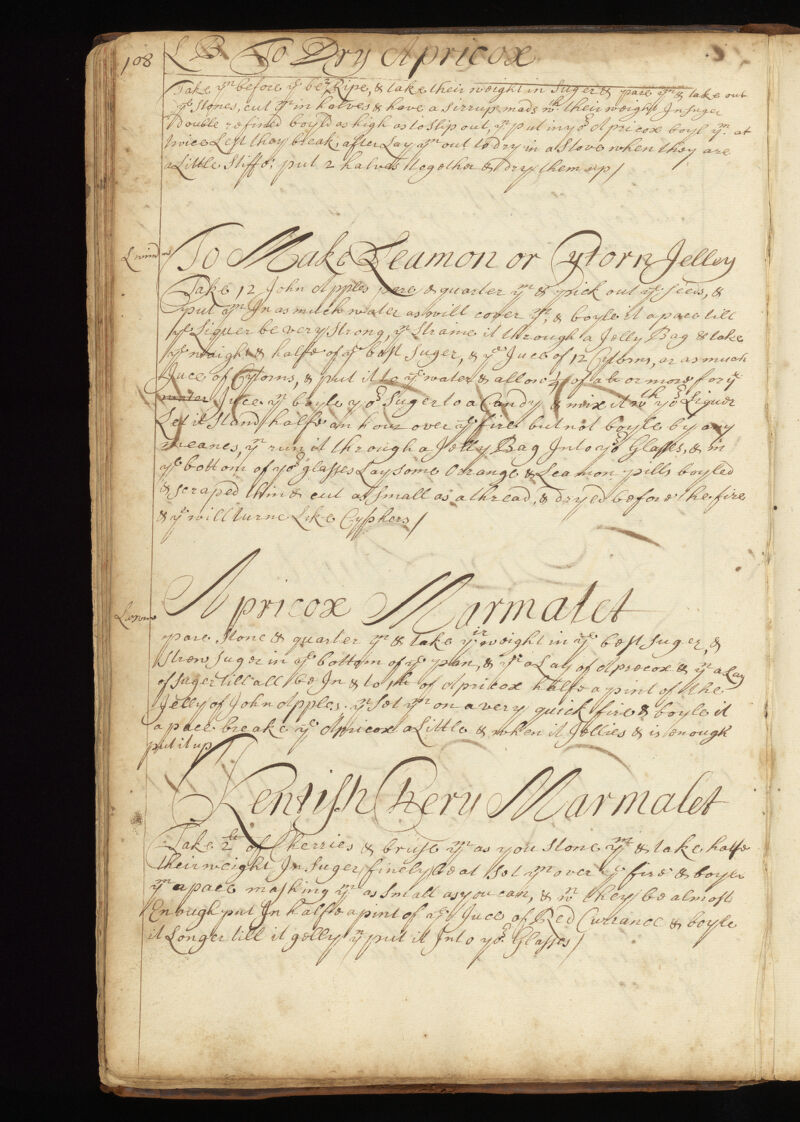 108
L B To Dry Apricox
Take ym before ye be Ripe, & take their weight in Suger & pare ym & take out
ye Stones, cut ym in halves & have a Sirrup made wth their weight In Suger
Double refined boyld as high as to Slip out, yn put in yor Apricox boyl ym at
twice Lest they break, after Lay ym out to dry in a Stove when they are
a Little Stiffe put 2 halves together & dry them up/
To Make Leamon or Cytorn Jelley
Take 12 John Apples pare & quarter ym & pick out ye Seeds, &
put ym In as much water as will cover ym, & boyle it apace till
ye Liquer be very Strong, yn Straine it through a Jelly Bag & take
ye waight & halfe of ye best Suger, & ye Juce of 12 Cytorns, or as much
Juce of Cytorns, & put it to ye water & allow of a or more for ye
Juce yn boyle yor Suger to a Candy & mix it wth yor Liquor
Let it Stand halfe an hour over ye fire but not boyle by any
meanes, yn run it through a Jelly Bag Into yor Glasses, & in
ye bottom of yor glasses Lay some Orange & Leamon pills boyled
& scraped thin & cut as Small as a thread, & dryed before the fire
& yt will turne Like Cyphers/
Apricox Marmalet
pare Stone & quarter ym & take yeir weight in ye best Suger, &
Strow Suger in ye bottom of ye pan, & yn a Lay of Aprecox & yn a Lay
of Suger till all be In & to 1lb of Apricox halfe a pint of the
Jelly of John Apples. yn Set ym on a very quick fire & boyle it
apace breake ye Apricox a Little & when it Jellies & is enough
put it up
Kentish Chery Marmalet
Take 2lb of Cherries & bruse ym as you Stone ym & take halfe
their weight In Suger finely beat Set ym over ye fire & boyle
ym apace mashing ym as Small as you can, & wn they be almost
Enough put In halfe a pint of ye Juce of Red Currance & boyle
it Longer till it gelly yn put it Into yor Glasses/